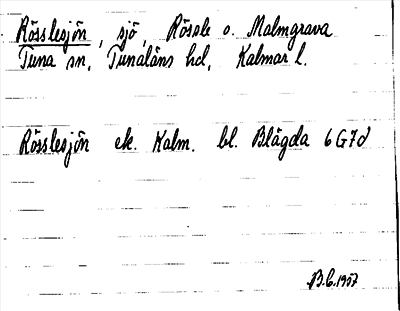 Rösslesjön, sjö, Rössle o. Malmgrava
Tuna sn, Tunaläns hd, Kalmar l.
Rösslesjön ek. Kalm. bl. Blägda 6G7d
B.C. 1957